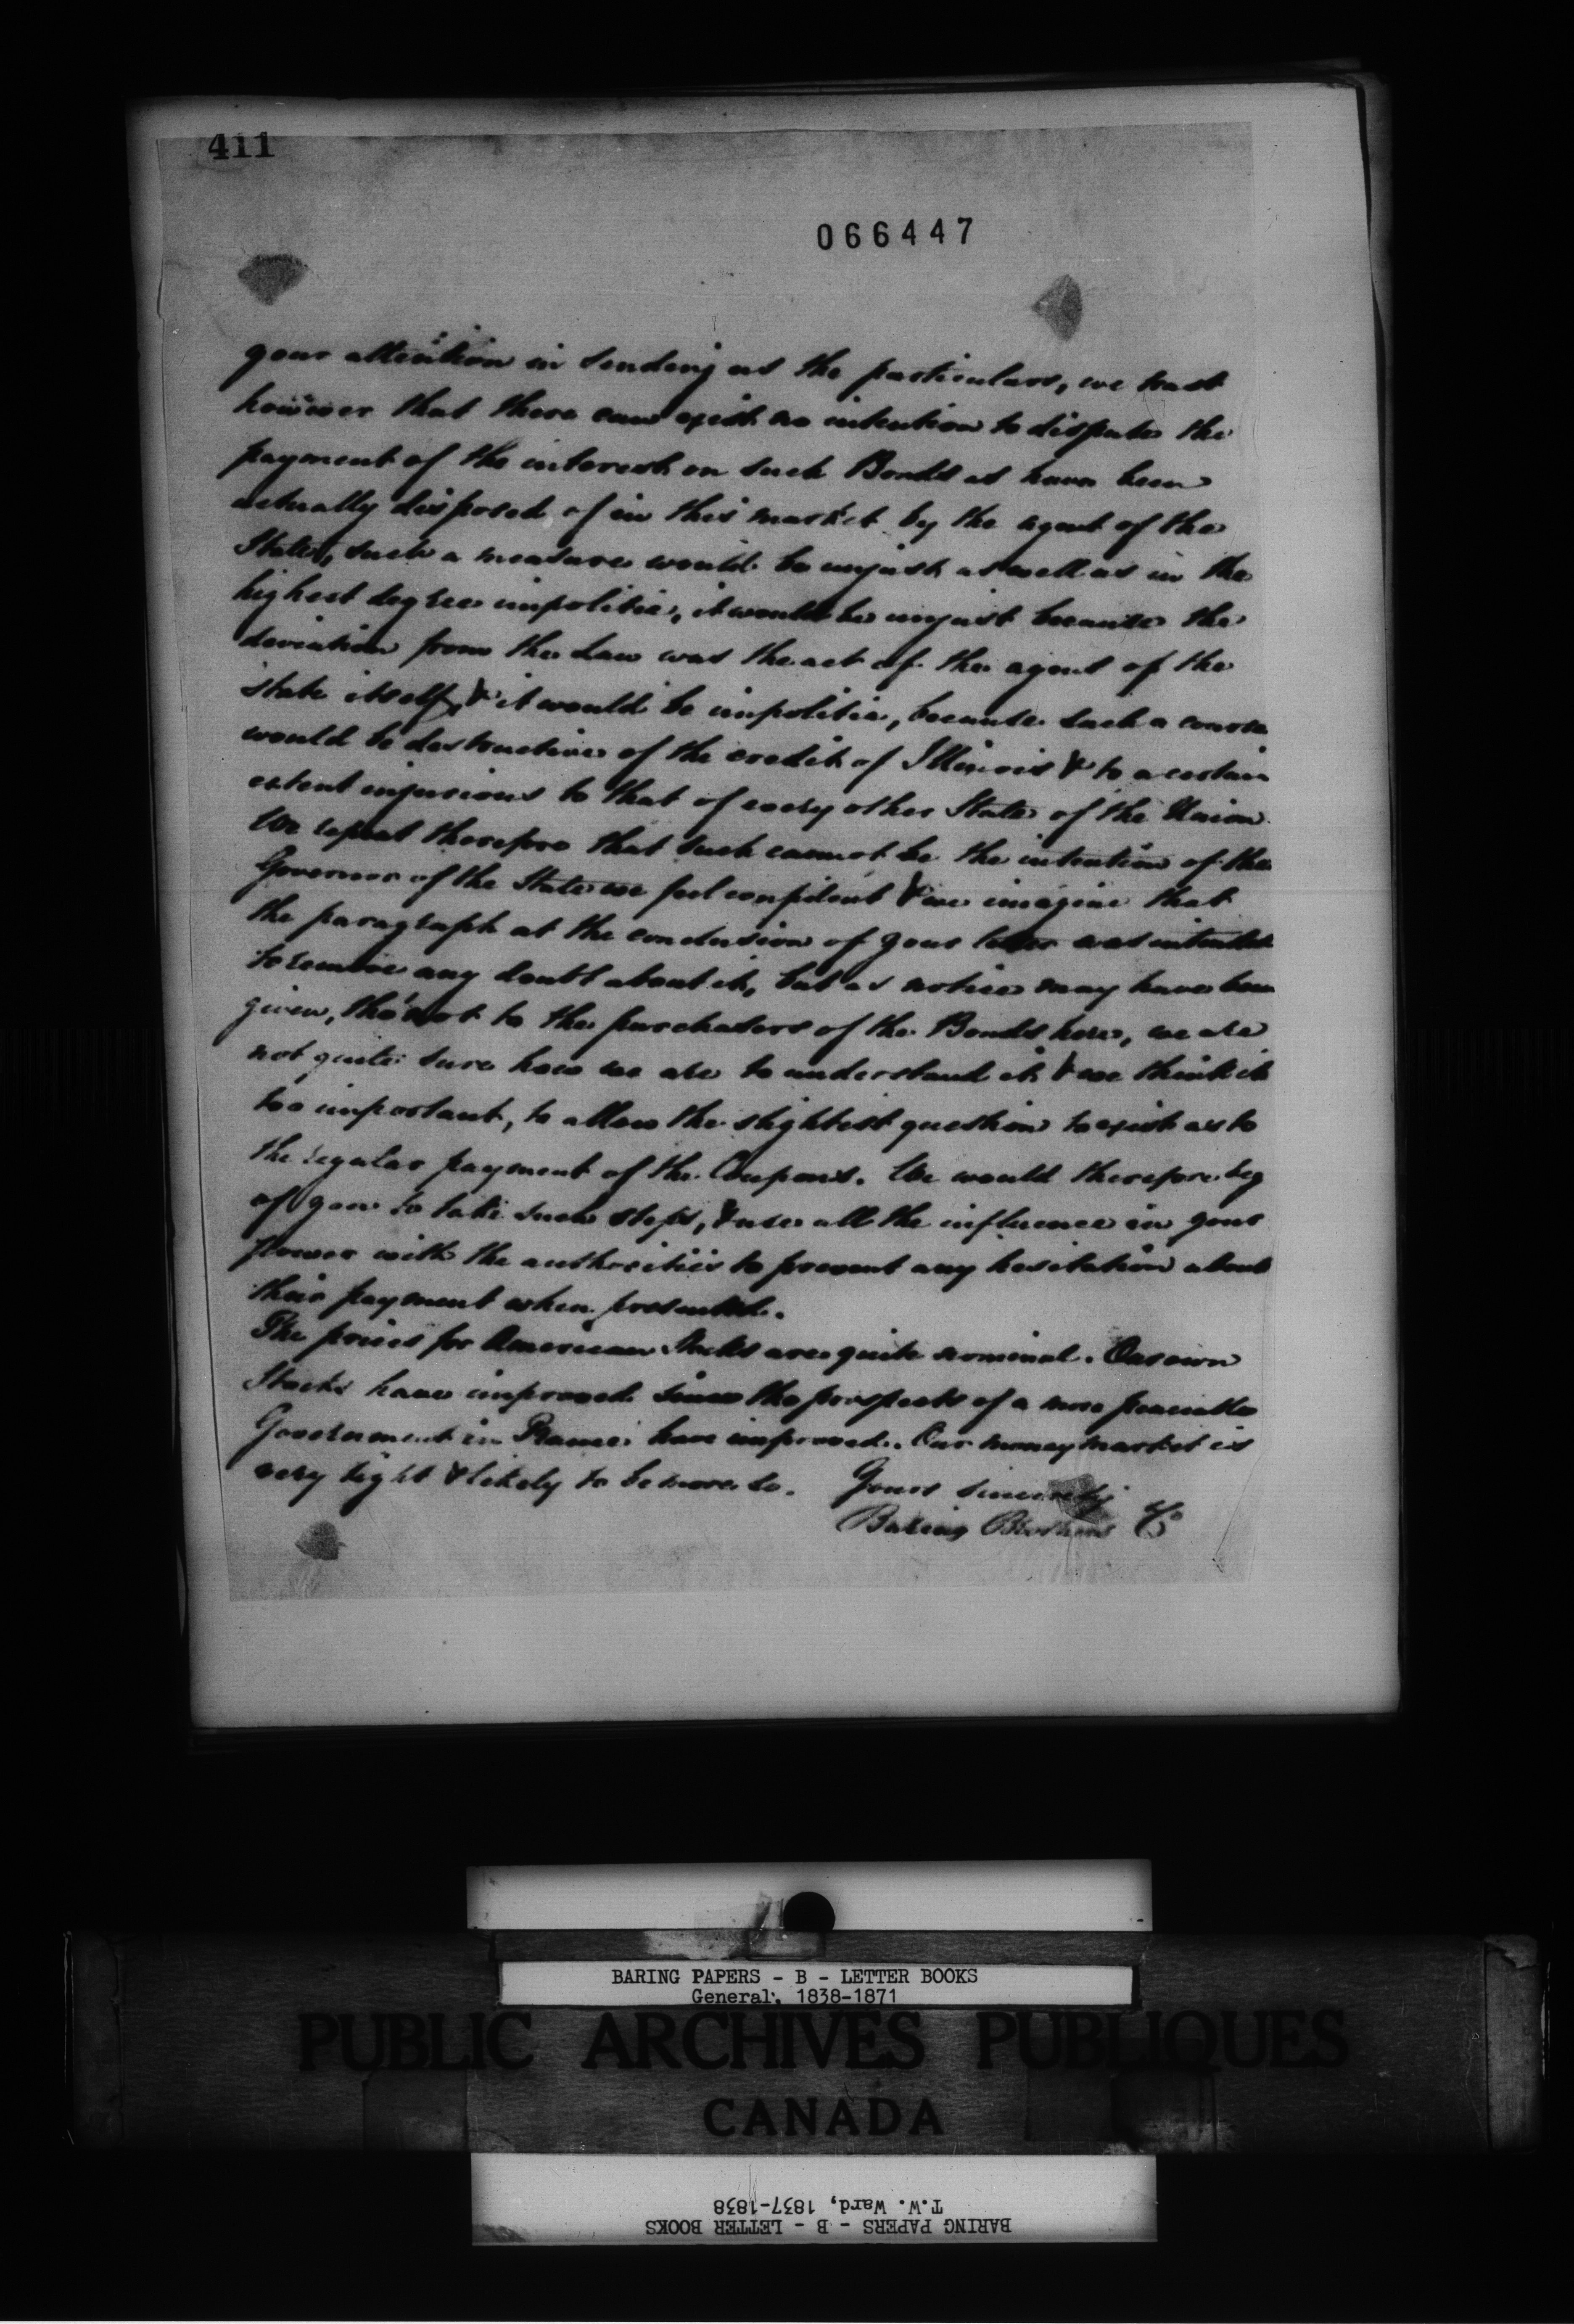 411
066447
your attention in sending us the particulars, we trust
however that there can exist no intention to dispute the
payment of the interest on such Bonds as have been
actually disposed of in this market by the agent of the
State, such a measure would be unjust as well as in the
highest degree impolitic, it would be unjust because the
deviation from the Law was the act of the agent of the
state itself, & it would be impolitic, because such a course
would be destructive of the credit of Illinois & to a certain
extent injurious to that of every other State of the Union.
We repeat therefore that such cannot be the intention of the
Governor of the State we feel confident & we imagine that
the paragraph at the conclusion of your letter was intended
to remove any doubt about it, but as notice may have been
given, tho' not to the purchasers of the Bonds here, we are
not quite sure how we are to understand it & we think it
too important, to allow the slightest question to exist as to
the regular payment of the Coupons. We would therefore beg
of you to take such steps, & use all the influence in your
power with the authorities to prevent any hesitation about
their payment when presented.
The prices for American Stocks are quite nominal. Our own
Stocks have improved since the prospects of a more peaceable
Government in France have improved. Our money market is
very tight & likely to be more so. Yours sincerely
Baring Brothers & Co
BARING PAPERS - B - LETTER BOOKS
General, 1838-1871
PUBLIC ARCHIVES PUBLIQUES
CANADA
T.W. Ward, 1837-1838
BARING PAPERS - B - LETTER BOOKS